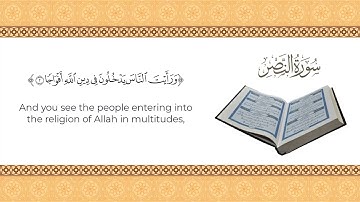 ﴿وَرَأَيْتَ النَّاسَ يَدْخُلُونَ فِي دِينِ اللَّهِ أَفْوَاجًا ٢﴾
And you see the people entering into
the religion of Allah in multitudes,
سُورَةُ النَّصْرِ